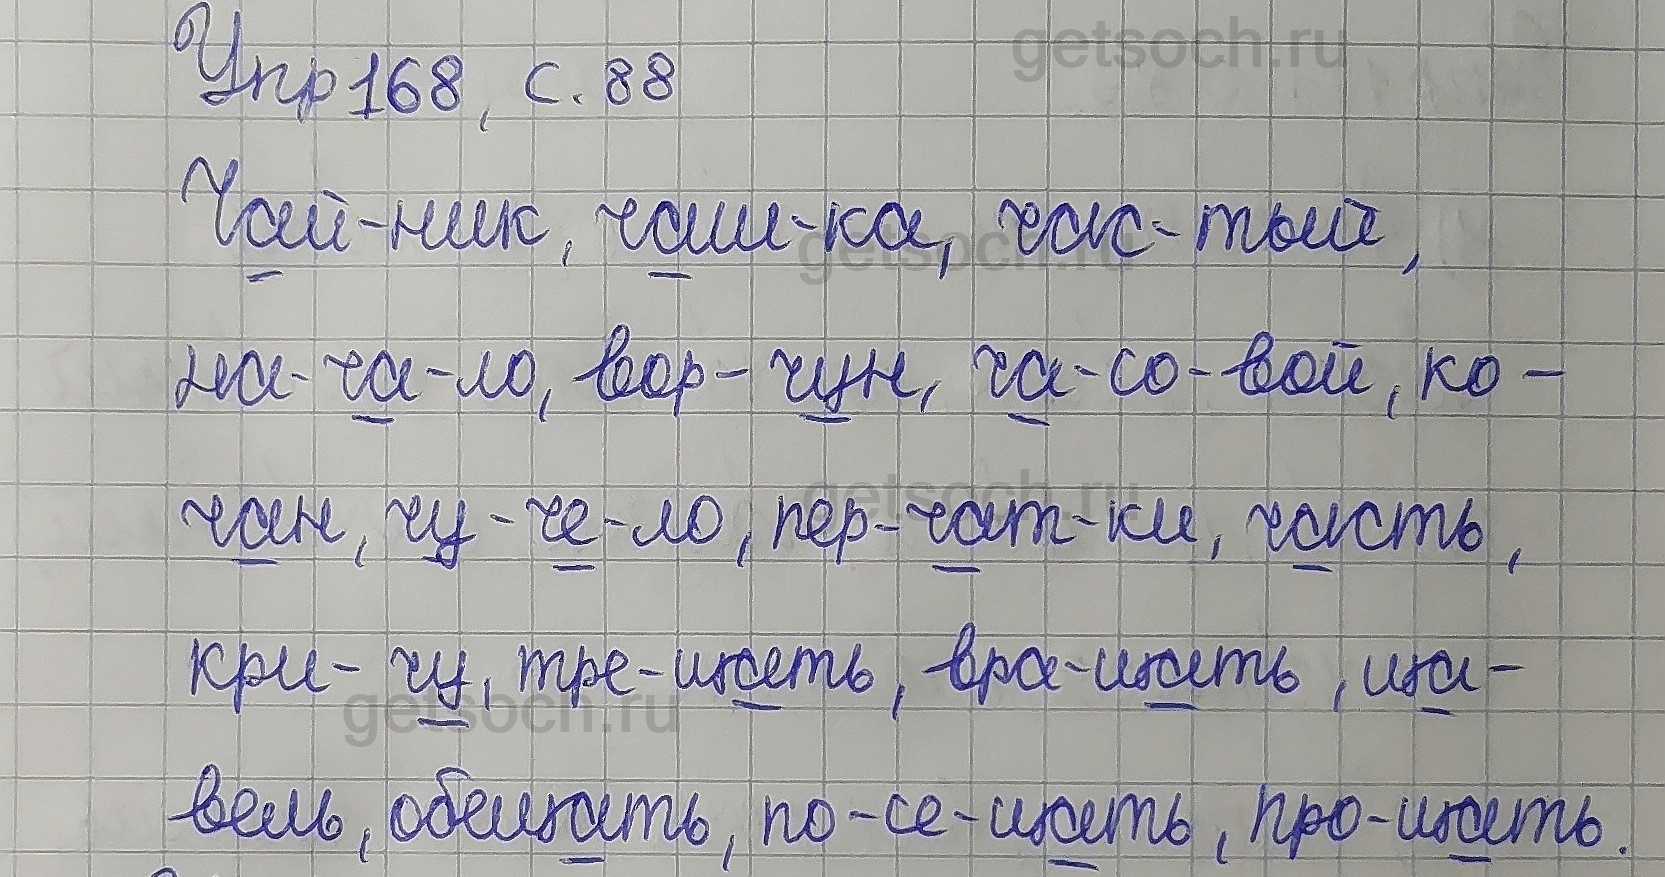 getsoch.ru
Упр 168, с. 88
Чай-ник, чаш-ка, час-тый,
getsoch.ru
на-ча-ло, вор-чун, ча-со-вой, ко-
getsoch.ru
чан, чу-че-ло, пер-чат-ки, часть,
кри-чу, тре-щать, вра-щать, ща-
getsoch.ru
вель, обещать, по-се-щать, про-щать.